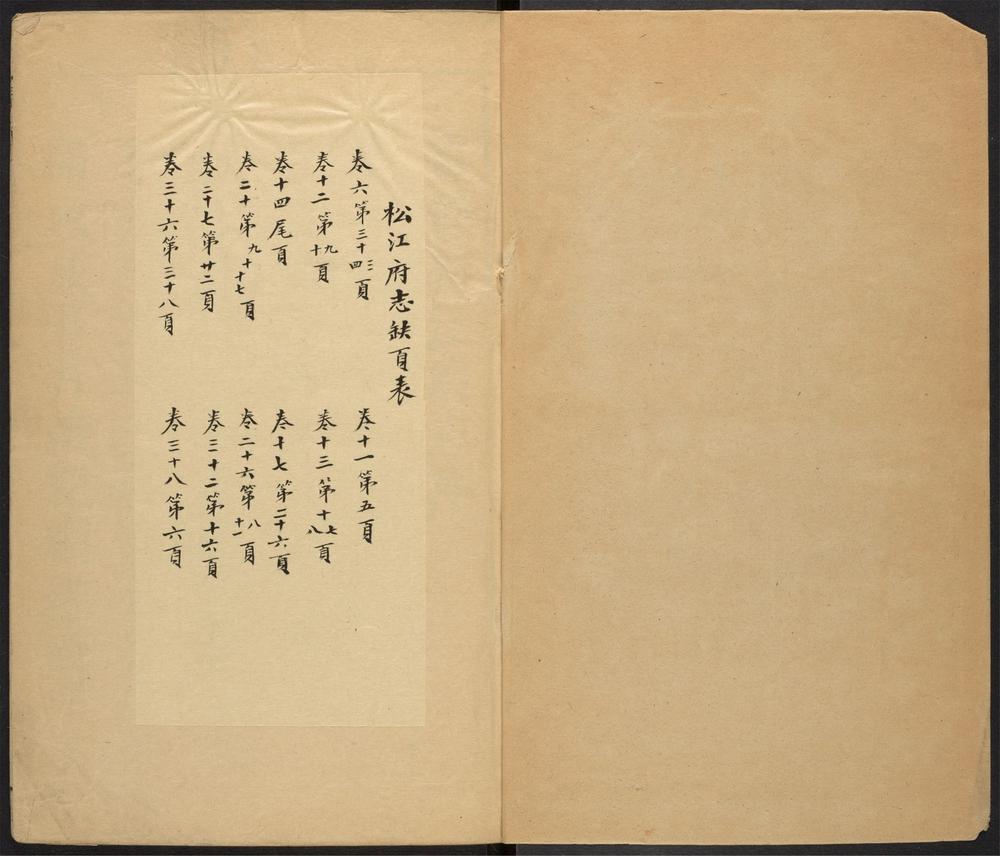 松江府志缺頁表
卷六第三十三四頁
卷十一第五頁
卷十二第九十頁
卷十三第十七八頁
卷十四尾頁
卷十七第二十六頁
卷二十第九十十七頁
卷二十六第八十一頁
卷二十七第廿二頁
卷三十二第十六頁
卷三十六第三十八頁
卷三十八第六頁